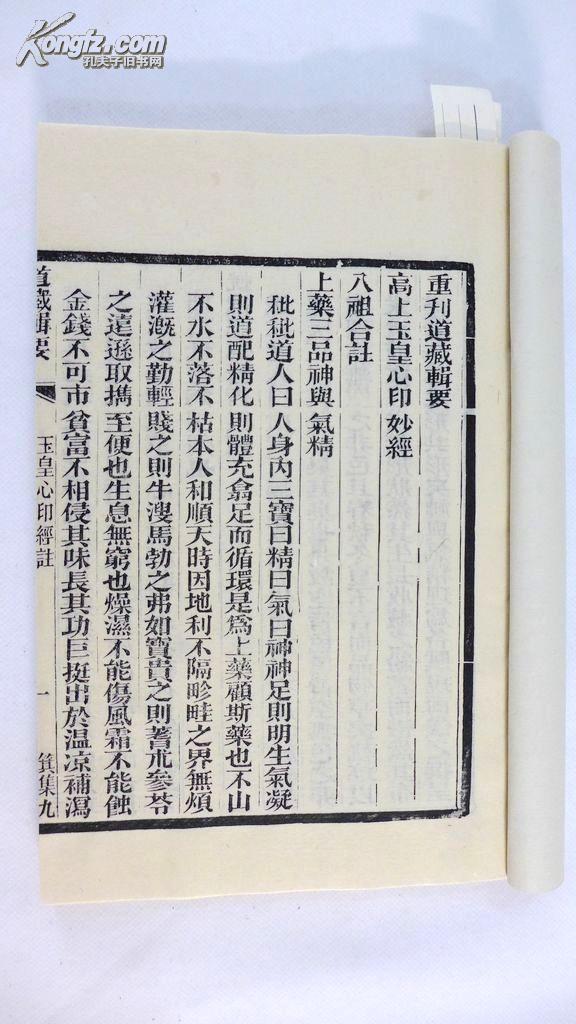 Kongfz.com
孔夫子旧书网
重刊道藏輯要
高上玉皇心印妙經
八祖合註
上藥三品神與氣精
秕秕道人曰人身內三寶曰精曰氣曰神神足則明生氣凝
則道配精化則體充翕足而循環是爲上藥顧斯藥也不山
不水不落不枯本人和順天時因地利不隔畛畦之界無煩
灌漑之勤輕賤之則牛溲馬勃之弗如寶貴之則蓍朮參苓
之遠遜取攜至便也生息無窮也燥濕不能傷風霜不能蝕
金錢不可市貧富不相侵其味長其功巨挺出於温凉補瀉
道藏輯要
玉皇心印經註
一
箕集九